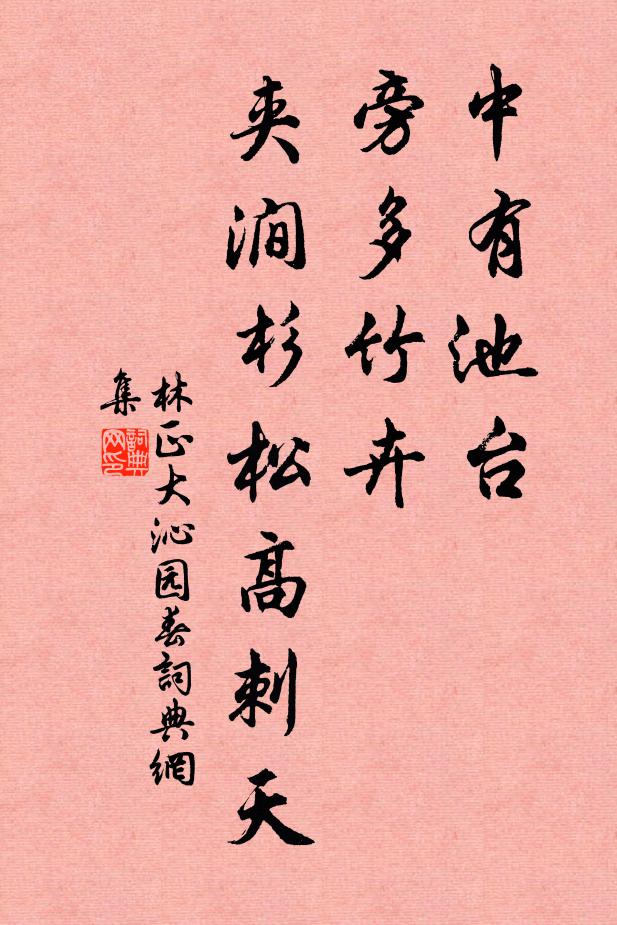 中有池台
旁多竹卉
夹涧杉松高刺天
林正大沁园春詞典網
集
詞典
网印